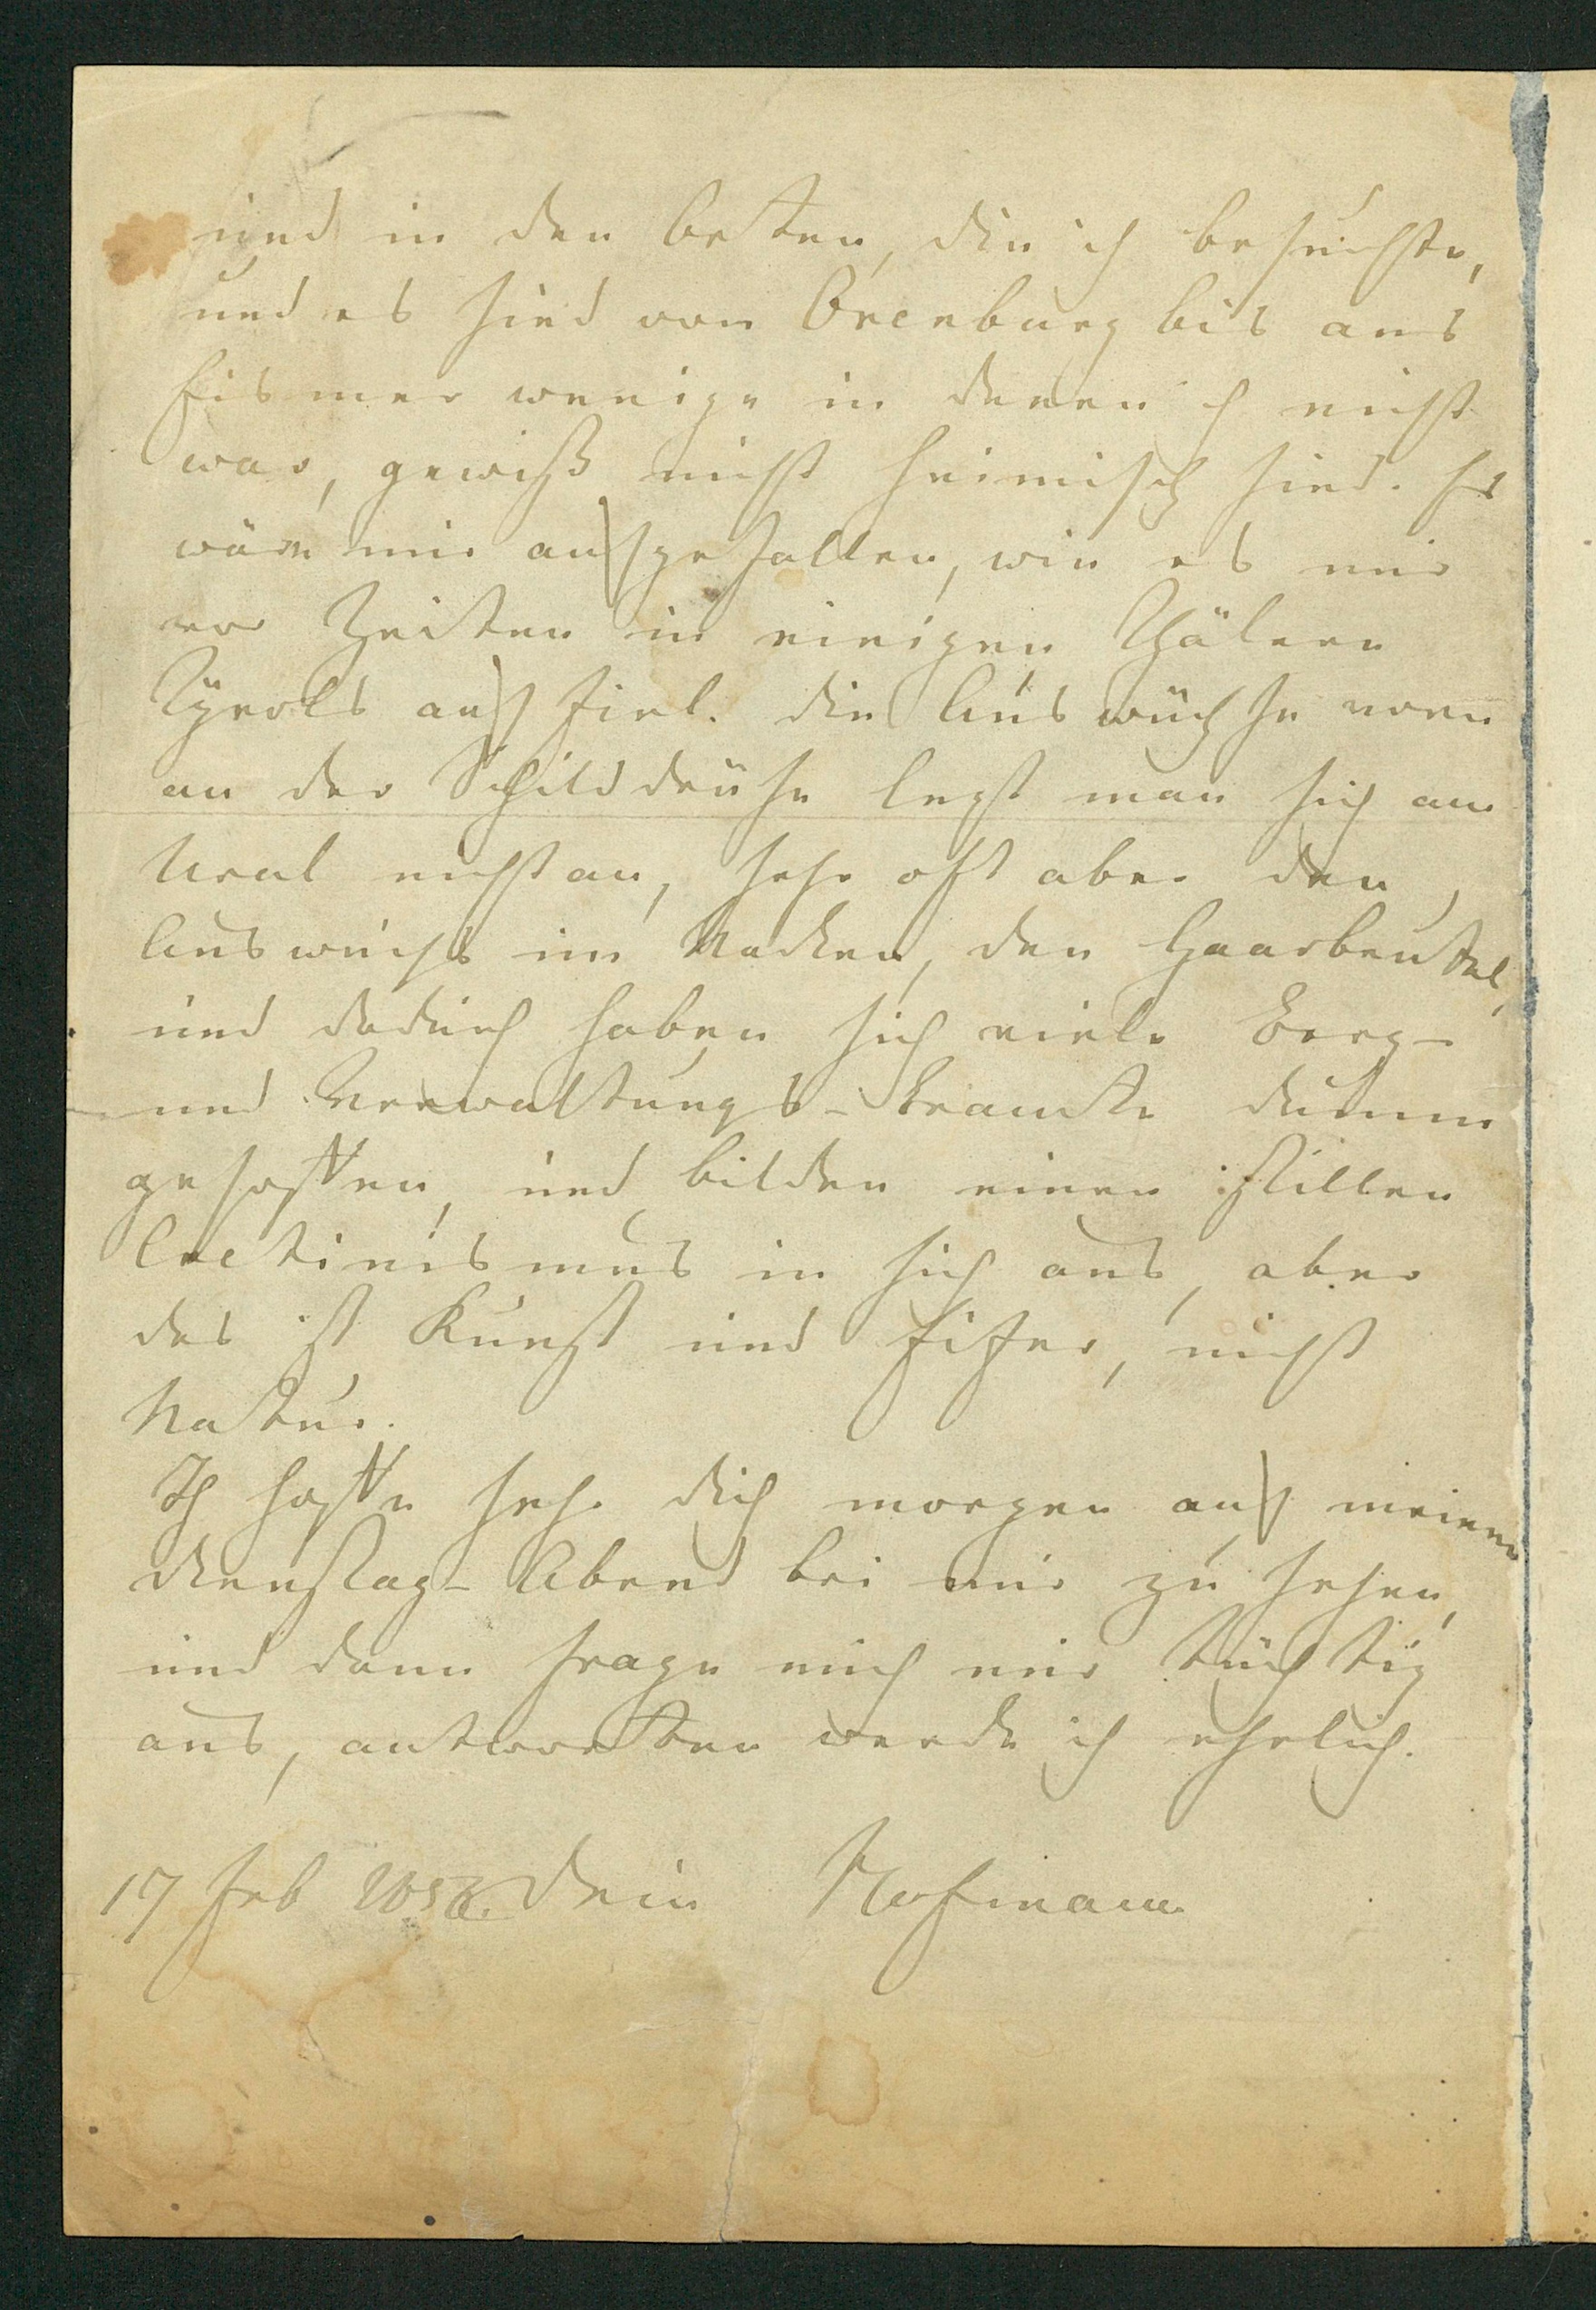 und in den Orten, die ich besuchte,
und es sind von Orenburg bis ans
Eismeer wenige in denen ich nicht
war, gewiß nicht heimisch sind. Es
wäre mir aufgefallen, wie es mir
vor Zeiten in einigen Thälern
Tyrols auffiel. Die Auswüchse vorn
an der Schilddrüse legt man sich am
Ural nicht an, sehr oft aber den
Auswuchs im Nacken, den Haarbeutel,
und dadurch haben sich viele Berg-
und Verwaltungs-Beamte dumm
gesoffen, und bilden einen stillen
Cretinismus in sich aus, aber
das ist Kunst und Eifer, nicht
Natur.
Ich hoffe sehr Dich morgen auf meinem
Dienstag-Abend bei mir zu sehen,
und dann frage mich nur tüchtig
aus, antworten werde ich ehrlich.
17 Feb Dein Hofmann